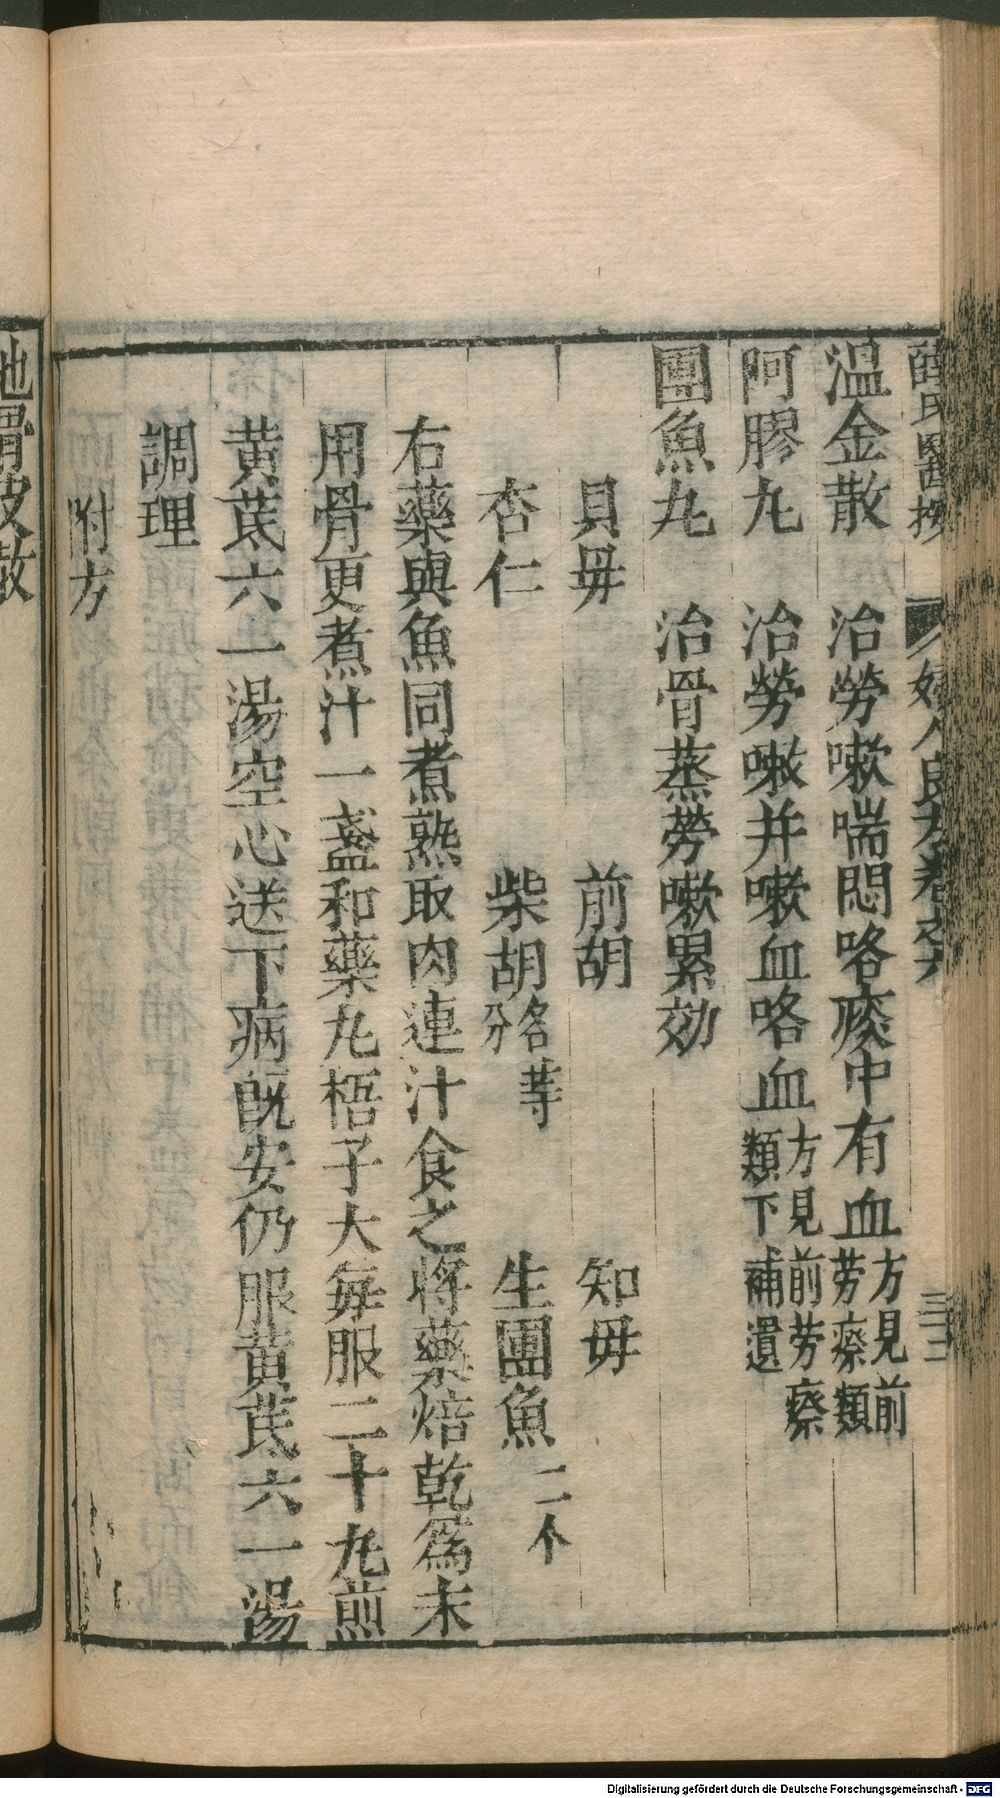 薛氏醫按 婦人良方卷之六 三十二
溫金散 治勞嗽喘悶咯痰中有血方見前勞瘵類
阿膠丸 治勞嗽并嗽血咯血方見前勞瘵類下補遺
團魚丸 治骨蒸勞嗽累効
貝毋 前胡 知毋
杏仁 柴胡各等分 生團魚二个
右藥與魚同煮熟取肉連汁食之將藥焙乾爲末
用骨更煮汁一盞和藥丸梧子大每服二十丸煎
黃芪六一湯空心送下病既安仍服黃芪六一湯
調理
附方
地骨皮散
Digitalisierung gefördert durch die Deutsche Forschungsgemeinschaft - DFG